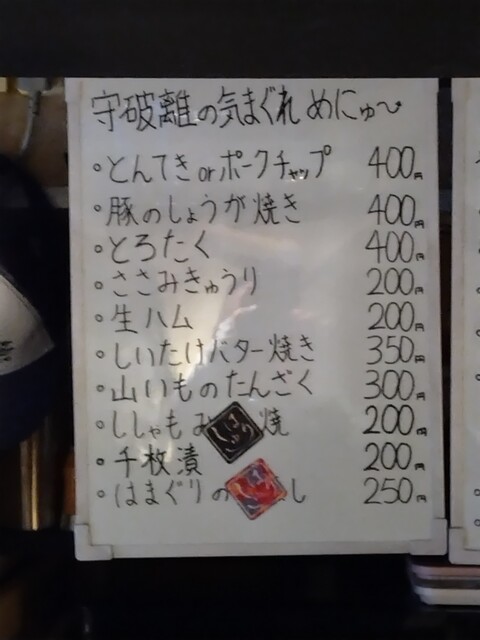 守破離の気まぐれ めにゅ〜
・とんてき or ポークチャップ 400円
・豚のしょうが焼き 400円
・とろたく 400円
・ささみきゅうり 200円
・生ハム 200円
・しいたけバター焼き 350円
・山いものたんざく 300円
・ししゃもみ 焼 200円
・千枚漬 200円
・はまぐりの し 250円